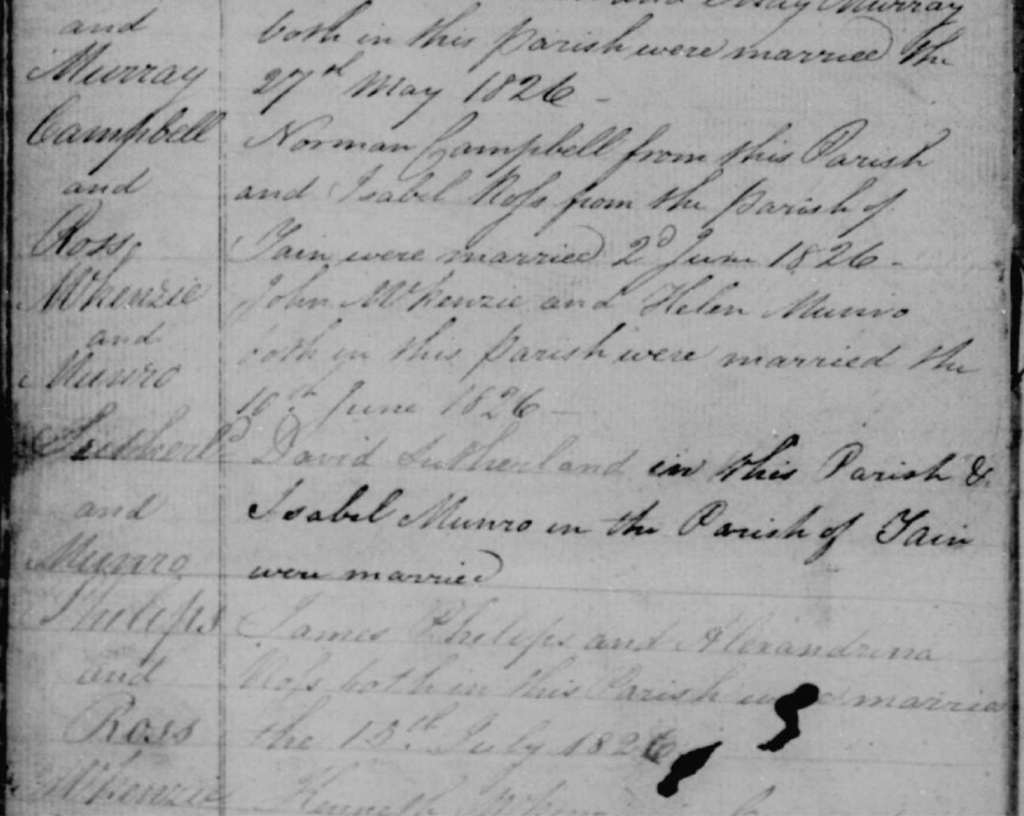 and May Murray
and both in this parish were married the
Murray 27th May 1826 -
Campbell Norman Campbell from this Parish
and and Isabel Ross from the parish of
Ross, Tain were married 2d June 1826 -
McKenzie John McKenzie and Helen Munro
and both in this parish were married the
Munro 10th June 1826 -
Sutherld David Sutherland in this Parish &
and Isabel Munro in the Parish of Tain
Munro were married
Philips James Philips and Alexandrina
and Ross both in this Parish were married
Ross the 13th July 1826
McKenzie Kenneth